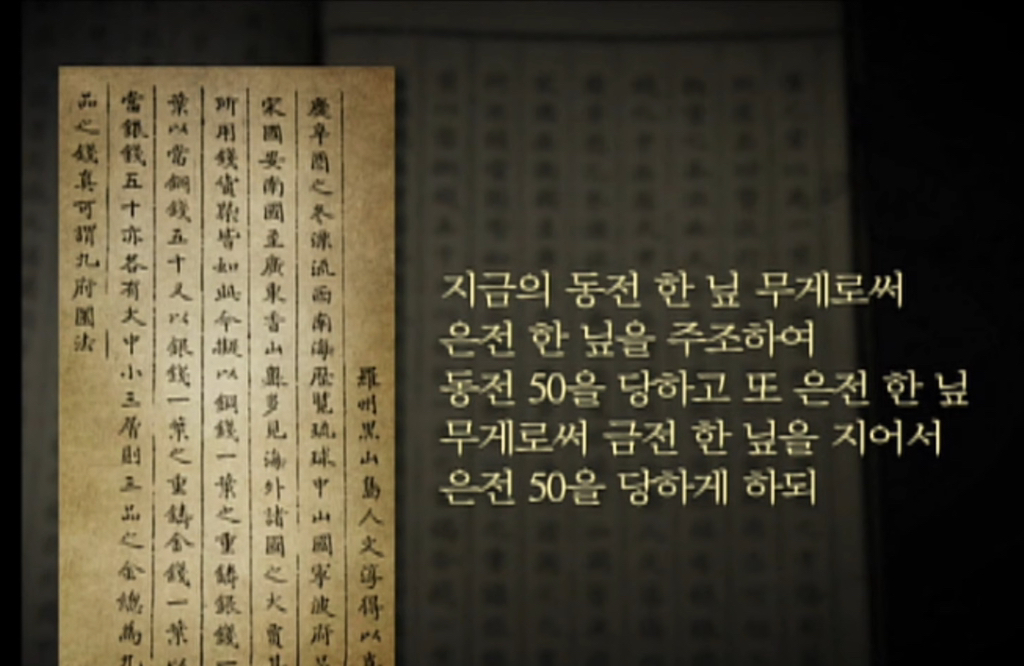 羅州黑山島人文淳得以
慶辛酉之冬漂流西南海歷覽琉球中山國寧波府
宋國安南國至廣東香山奧多見海外諸國之大賈
所用錢貨槩皆如此今擬以銅錢一葉之重鑄銀錢一
葉以當銅錢五十又以銀錢一葉之重鑄金錢一葉以
當銀錢五十亦各有大中小三層則三品之金總爲九
品之錢真可謂九府圜法
지금의 동전 한 닢 무게로써
은전 한 닢을 주조하여
동전 50을 당하고 또 은전 한 닢
무게로써 금전 한 닢을 지어서
은전 50을 당하게 하되